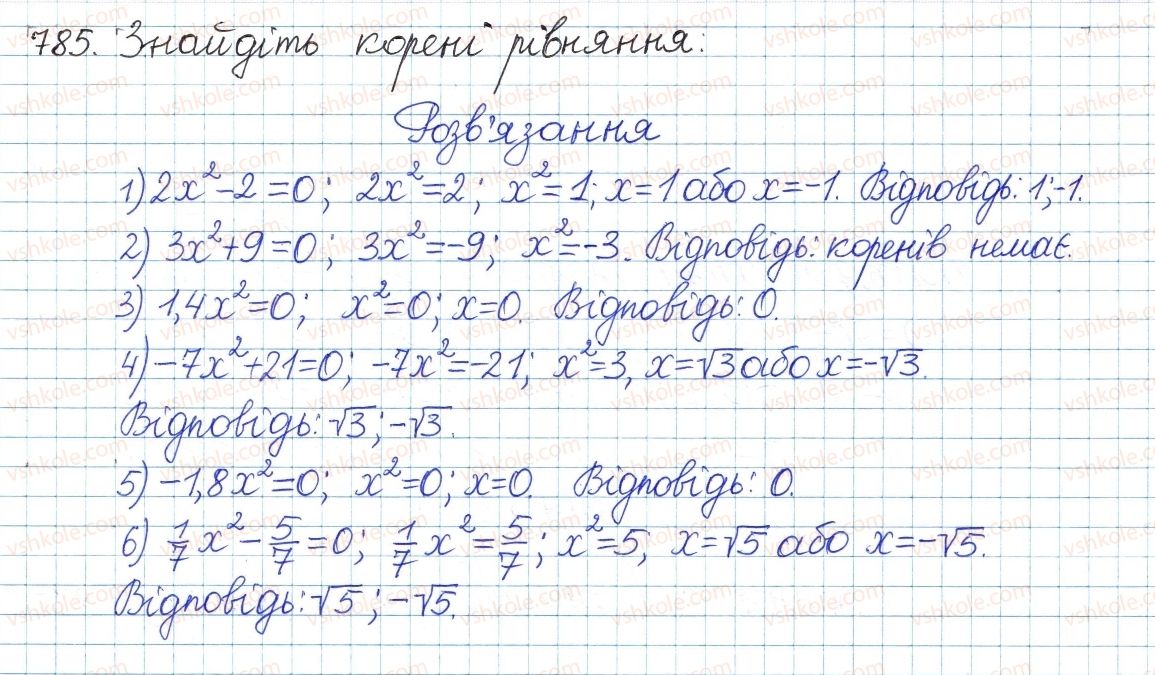 785. Знайдіть корені рівняння:
Розв'язання
1) 2x²-2=0; 2x²=2; x²=1; x=1 або x=-1. Відповідь: 1; -1.
2) 3x²+9=0; 3x²=-9; x²=-3. Відповідь: коренів немає.
3) 1,4x²=0; x²=0; x=0. Відповідь: 0.
4) -7x²+21=0; -7x²=-21; x²=3, x=√3 або x=-√3.
Відповідь: √3; -√3.
5) -1,8x²=0; x²=0; x=0. Відповідь: 0.
6) 1/7 x² - 5/7 = 0; 1/7 x² = 5/7; x²=5; x=√5 або x=-√5.
Відповідь: √5; -√5.